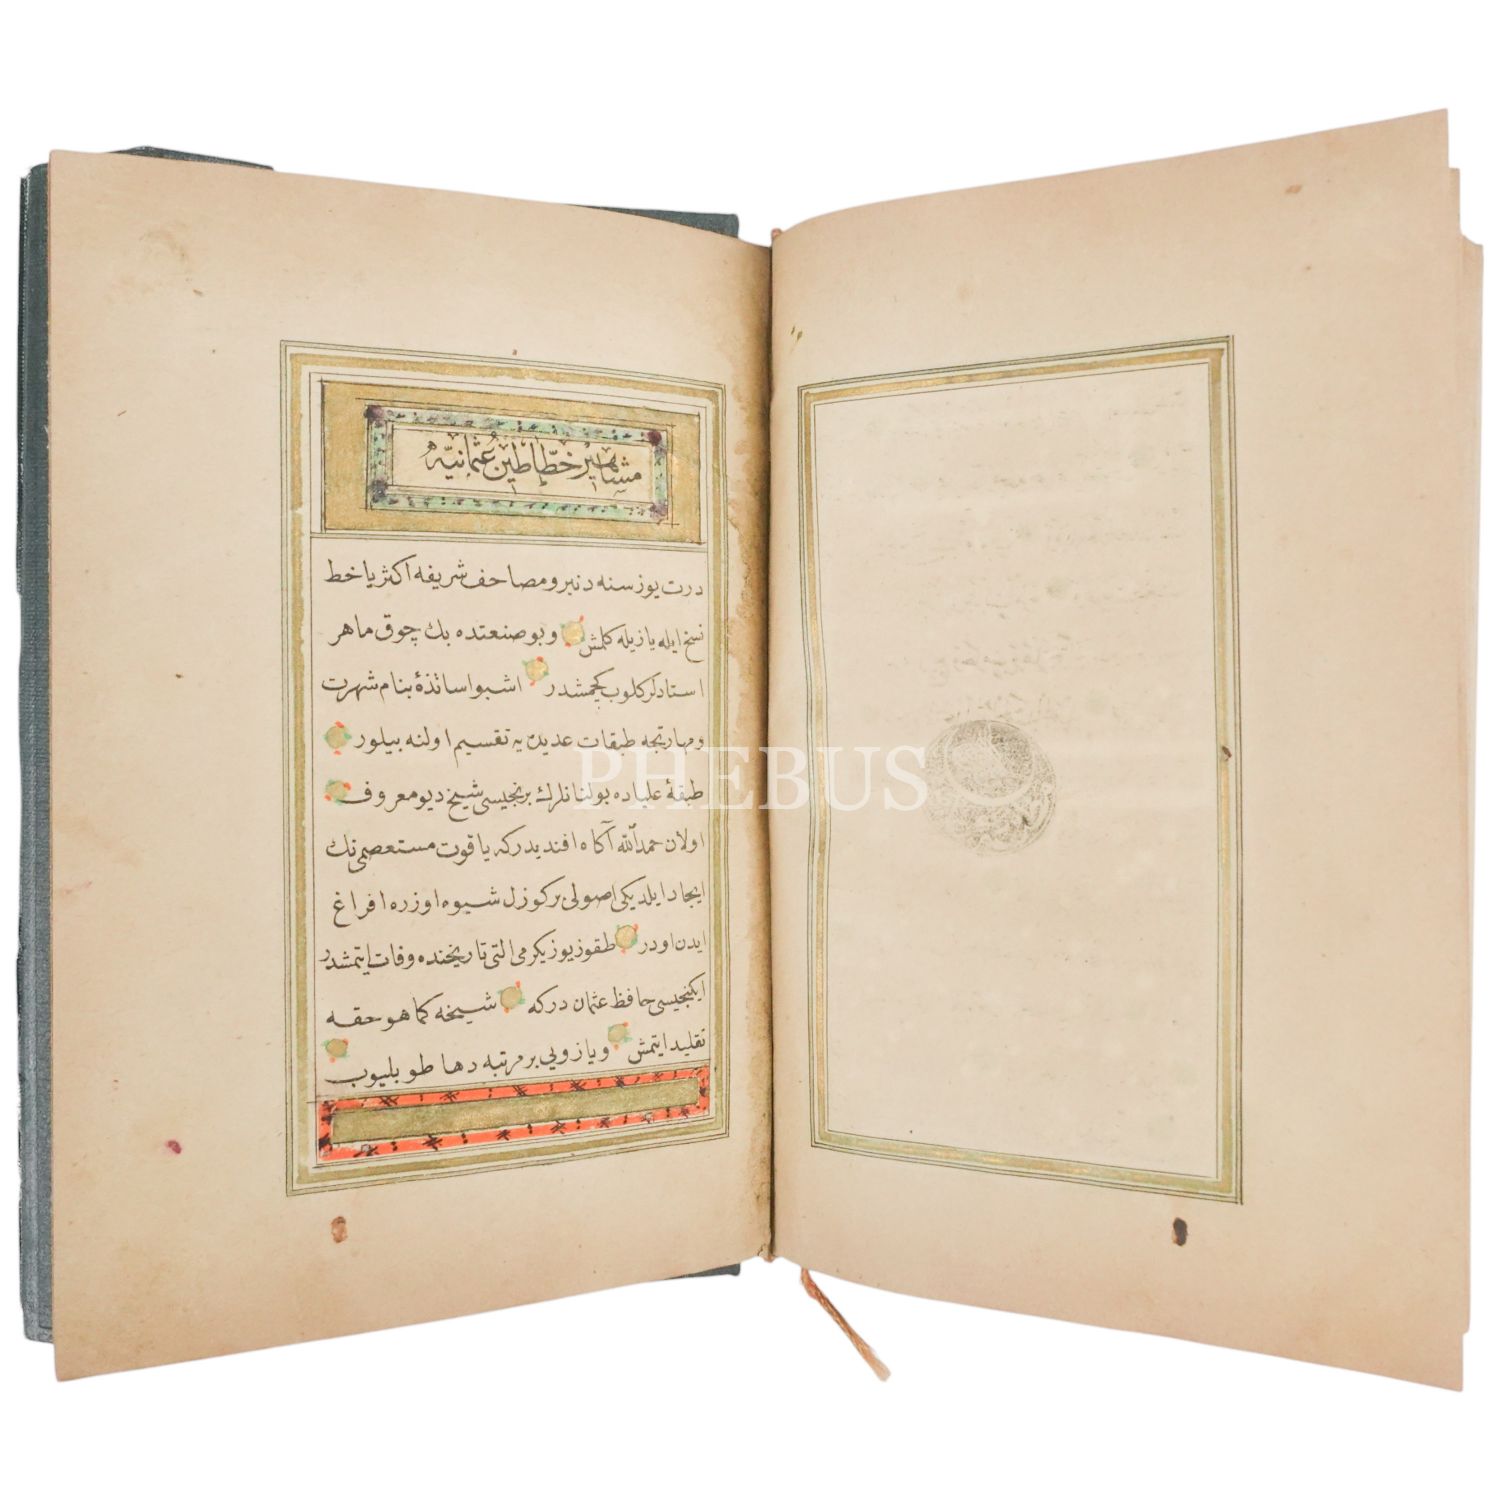 مشاهير خطّاطين عُثمانيّه
درت يوز سنه دنبرو مصاحف شريفه اكثريا خط
نسخ ايله يازيله كلمش وبو صنعتده بك چوق ماهر
استادلر كلوب كچمشدر اشبو اساتذۀ بنام شهرت
ومهارتجه طبقات عديده يه تقسيم اولنه بيلور
طبقۀ علياده بولنانلرك برنجيسى شيخ ديو معروف
اولان حمدالله آكاه افنديدركه ياقوت مستعصمى نك
ايجاد ايلديكى اصولى بر كوزل شيوه اوزره افراغ
ايدن اودر طقوز يوز يكرمى التى تاريخنده وفات ايتمشدر
ايكنجيسى حافظ عثمان دركه شيخه كما هو حقه
تقليد ايتمش ويازويى بر مرتبه دها طوبليوب
PHEBUS